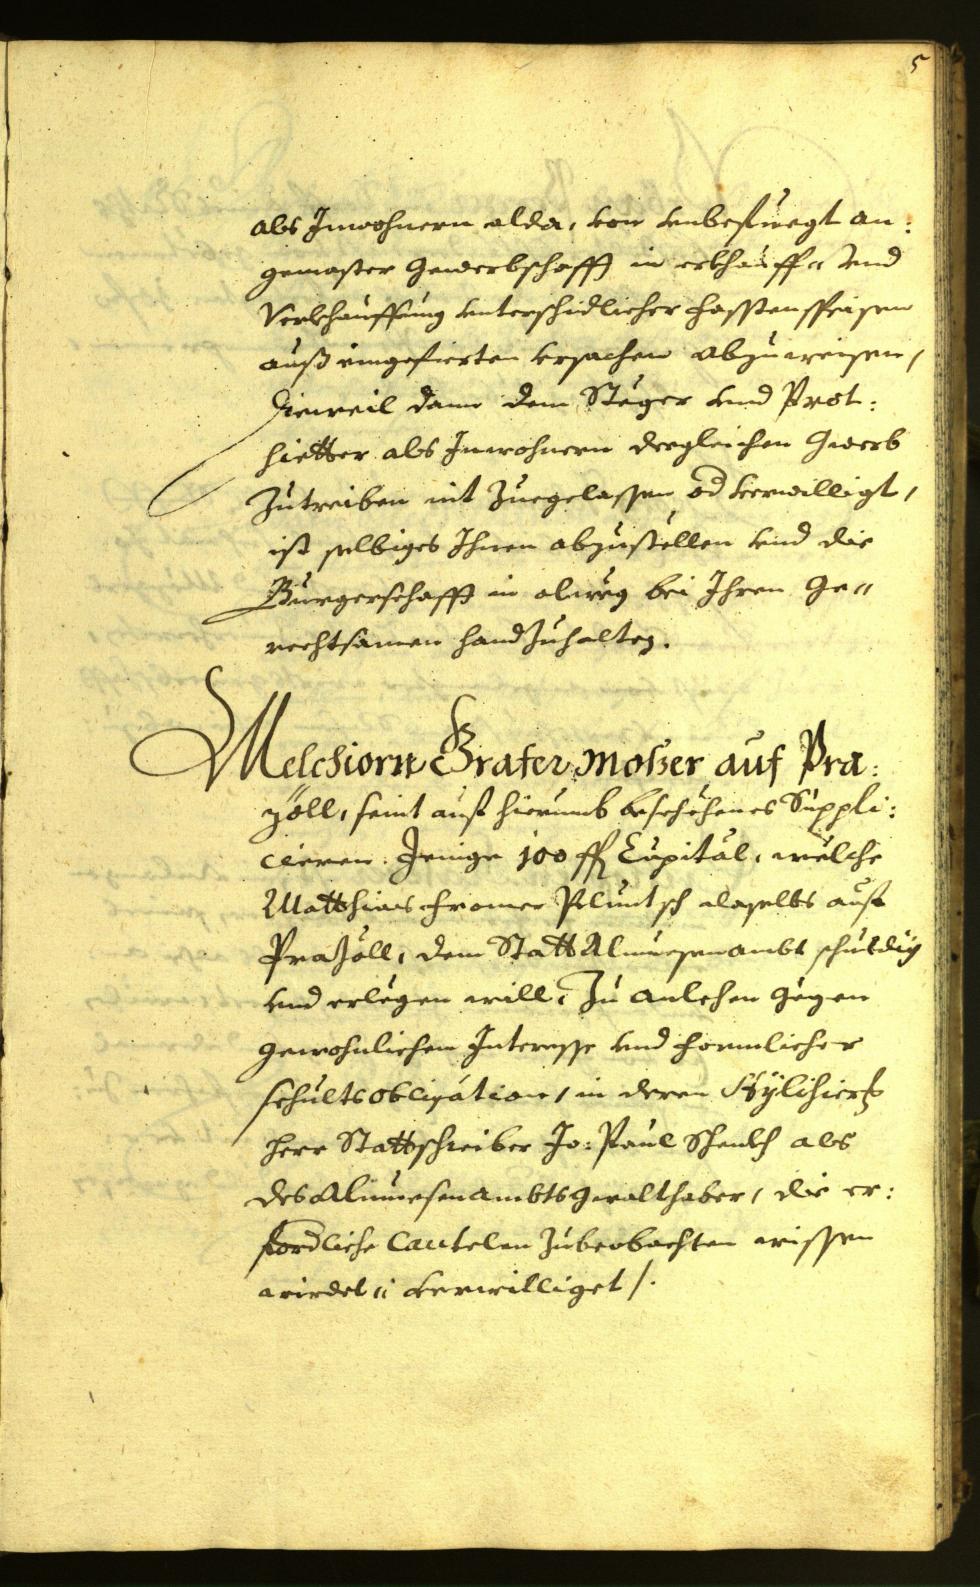 5
als Inwohnern alda, von unbefuegt an:
gemaster Gewerbschafft in erkhauff= und
Verkhauffung unterschidlicher Fasstenspeisen
auß eingefierten Ursachen abzuweisen,
Dieweil dann dem Steger und Prot:
hietter als Inwohnern dergleichen Gwerb
zutreiben nit zuegelassen od verwilligt,
ist selbiges Ihnen abzustellen und die
Burgerschafft in alweg bei Ihren Ge=
rechtsamen handzuhalten.
Melchiorn Grafer, Moßer auf Pra:
zöll, seint auf hierumb beschehenes Suppli:
cieren Jenige 100 ff Capital, welche
Matthias Fromer Pluntsch daselbs auf
Prazöll, dem Statt Almuesenambt schuldig
und erlegen will, zu anlehen gegen
gewohnlichen Interesse und formlicher
schults obligation, in deren Stylisier
Herr Stattschreiber Jo: Paul Schenkh als
des Almuesenambts Gwalthaber, die er:
fordliche Cautelen zubeobachten wissen
wirdet, verwilliget /.